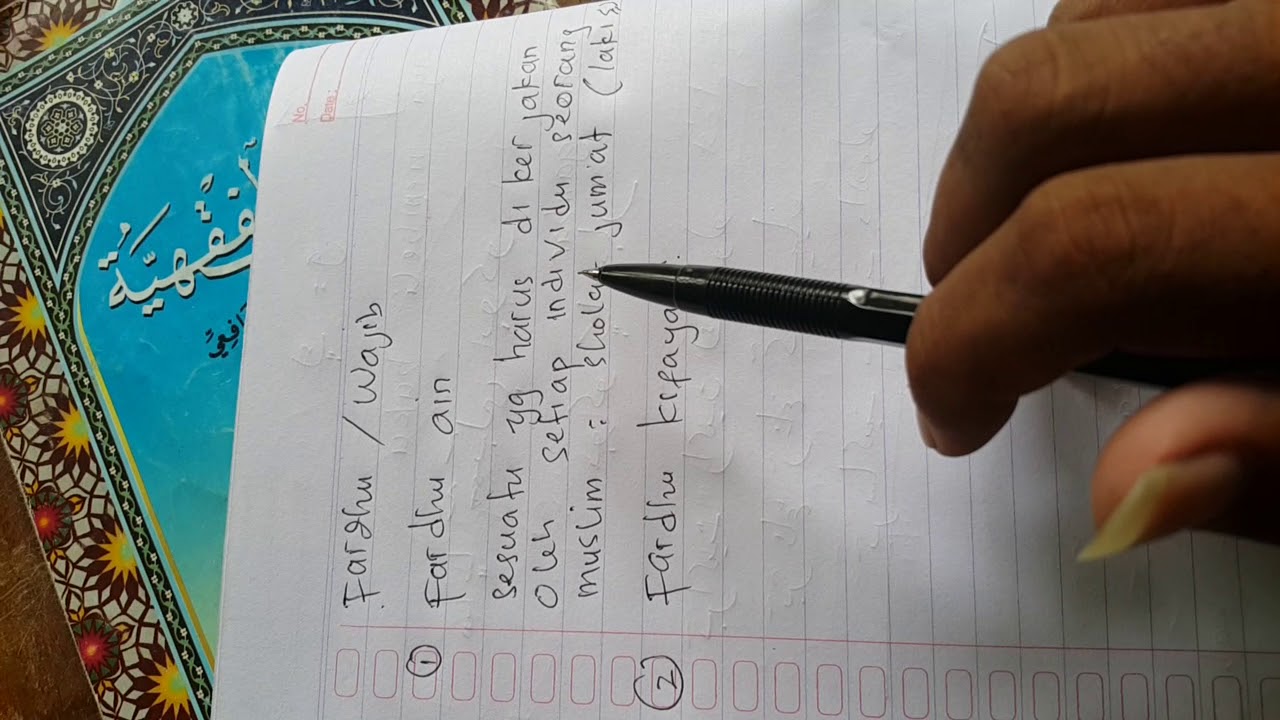 No.
Date:
Fardhu / Wajib
① Fardhu ain
sesuatu yg harus di kerjakan
oleh setiap individu seorang
muslim : sholat jum'at (laki
② Fardhu kifaya
الفقهية